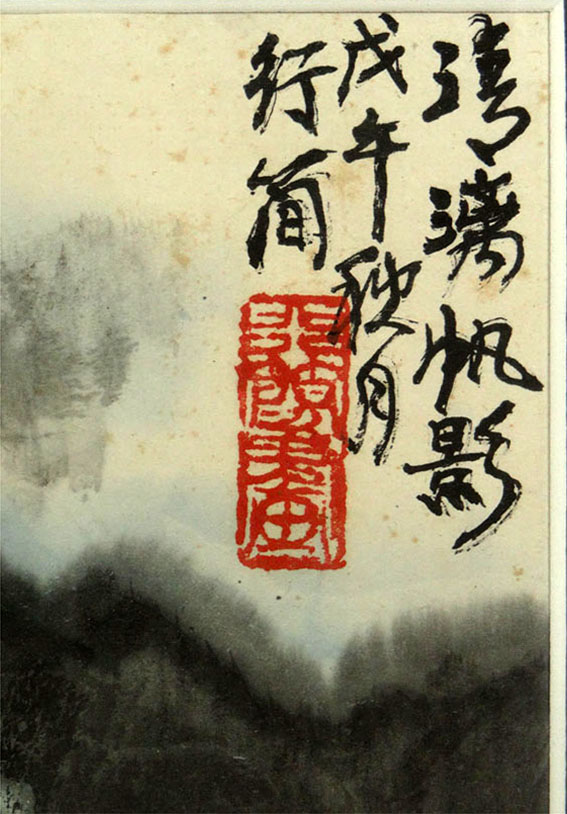 清漓帆影
戊午秋月
行简